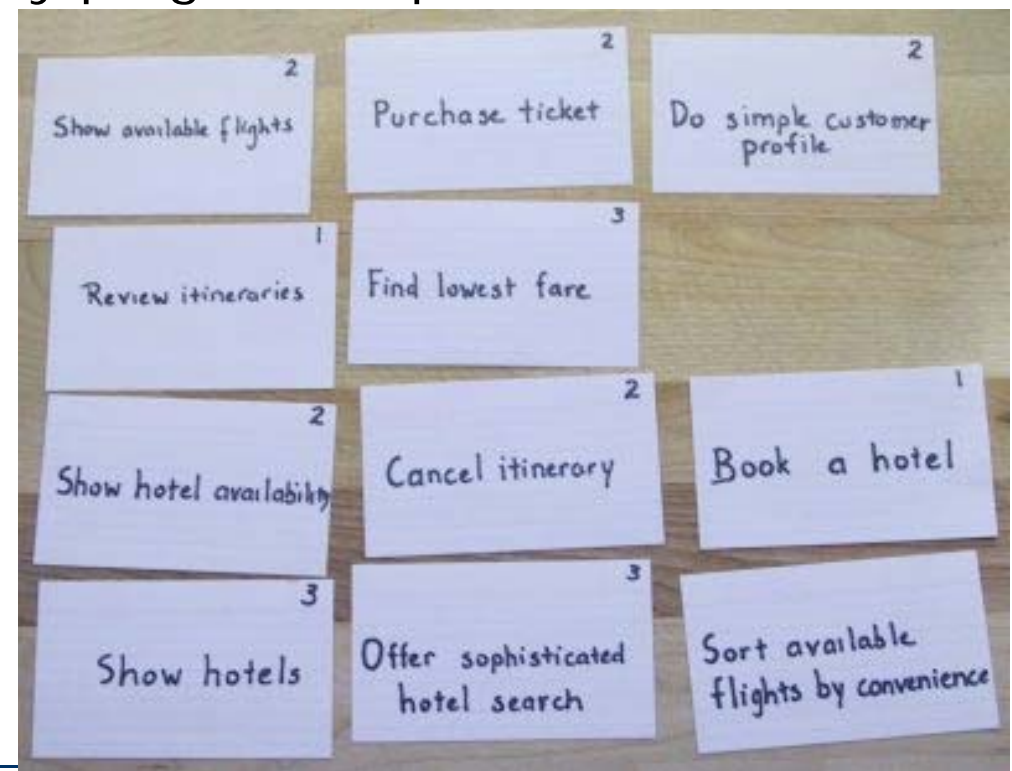 2
Show available flights
2
Purchase ticket
2
Do simple customer
profile
1
Review itineraries
3
Find lowest fare
2
Show hotel availability
2
Cancel itinerary
1
Book a hotel
3
Show hotels
3
Offer sophisticated
hotel search
Sort available
flights by convenience